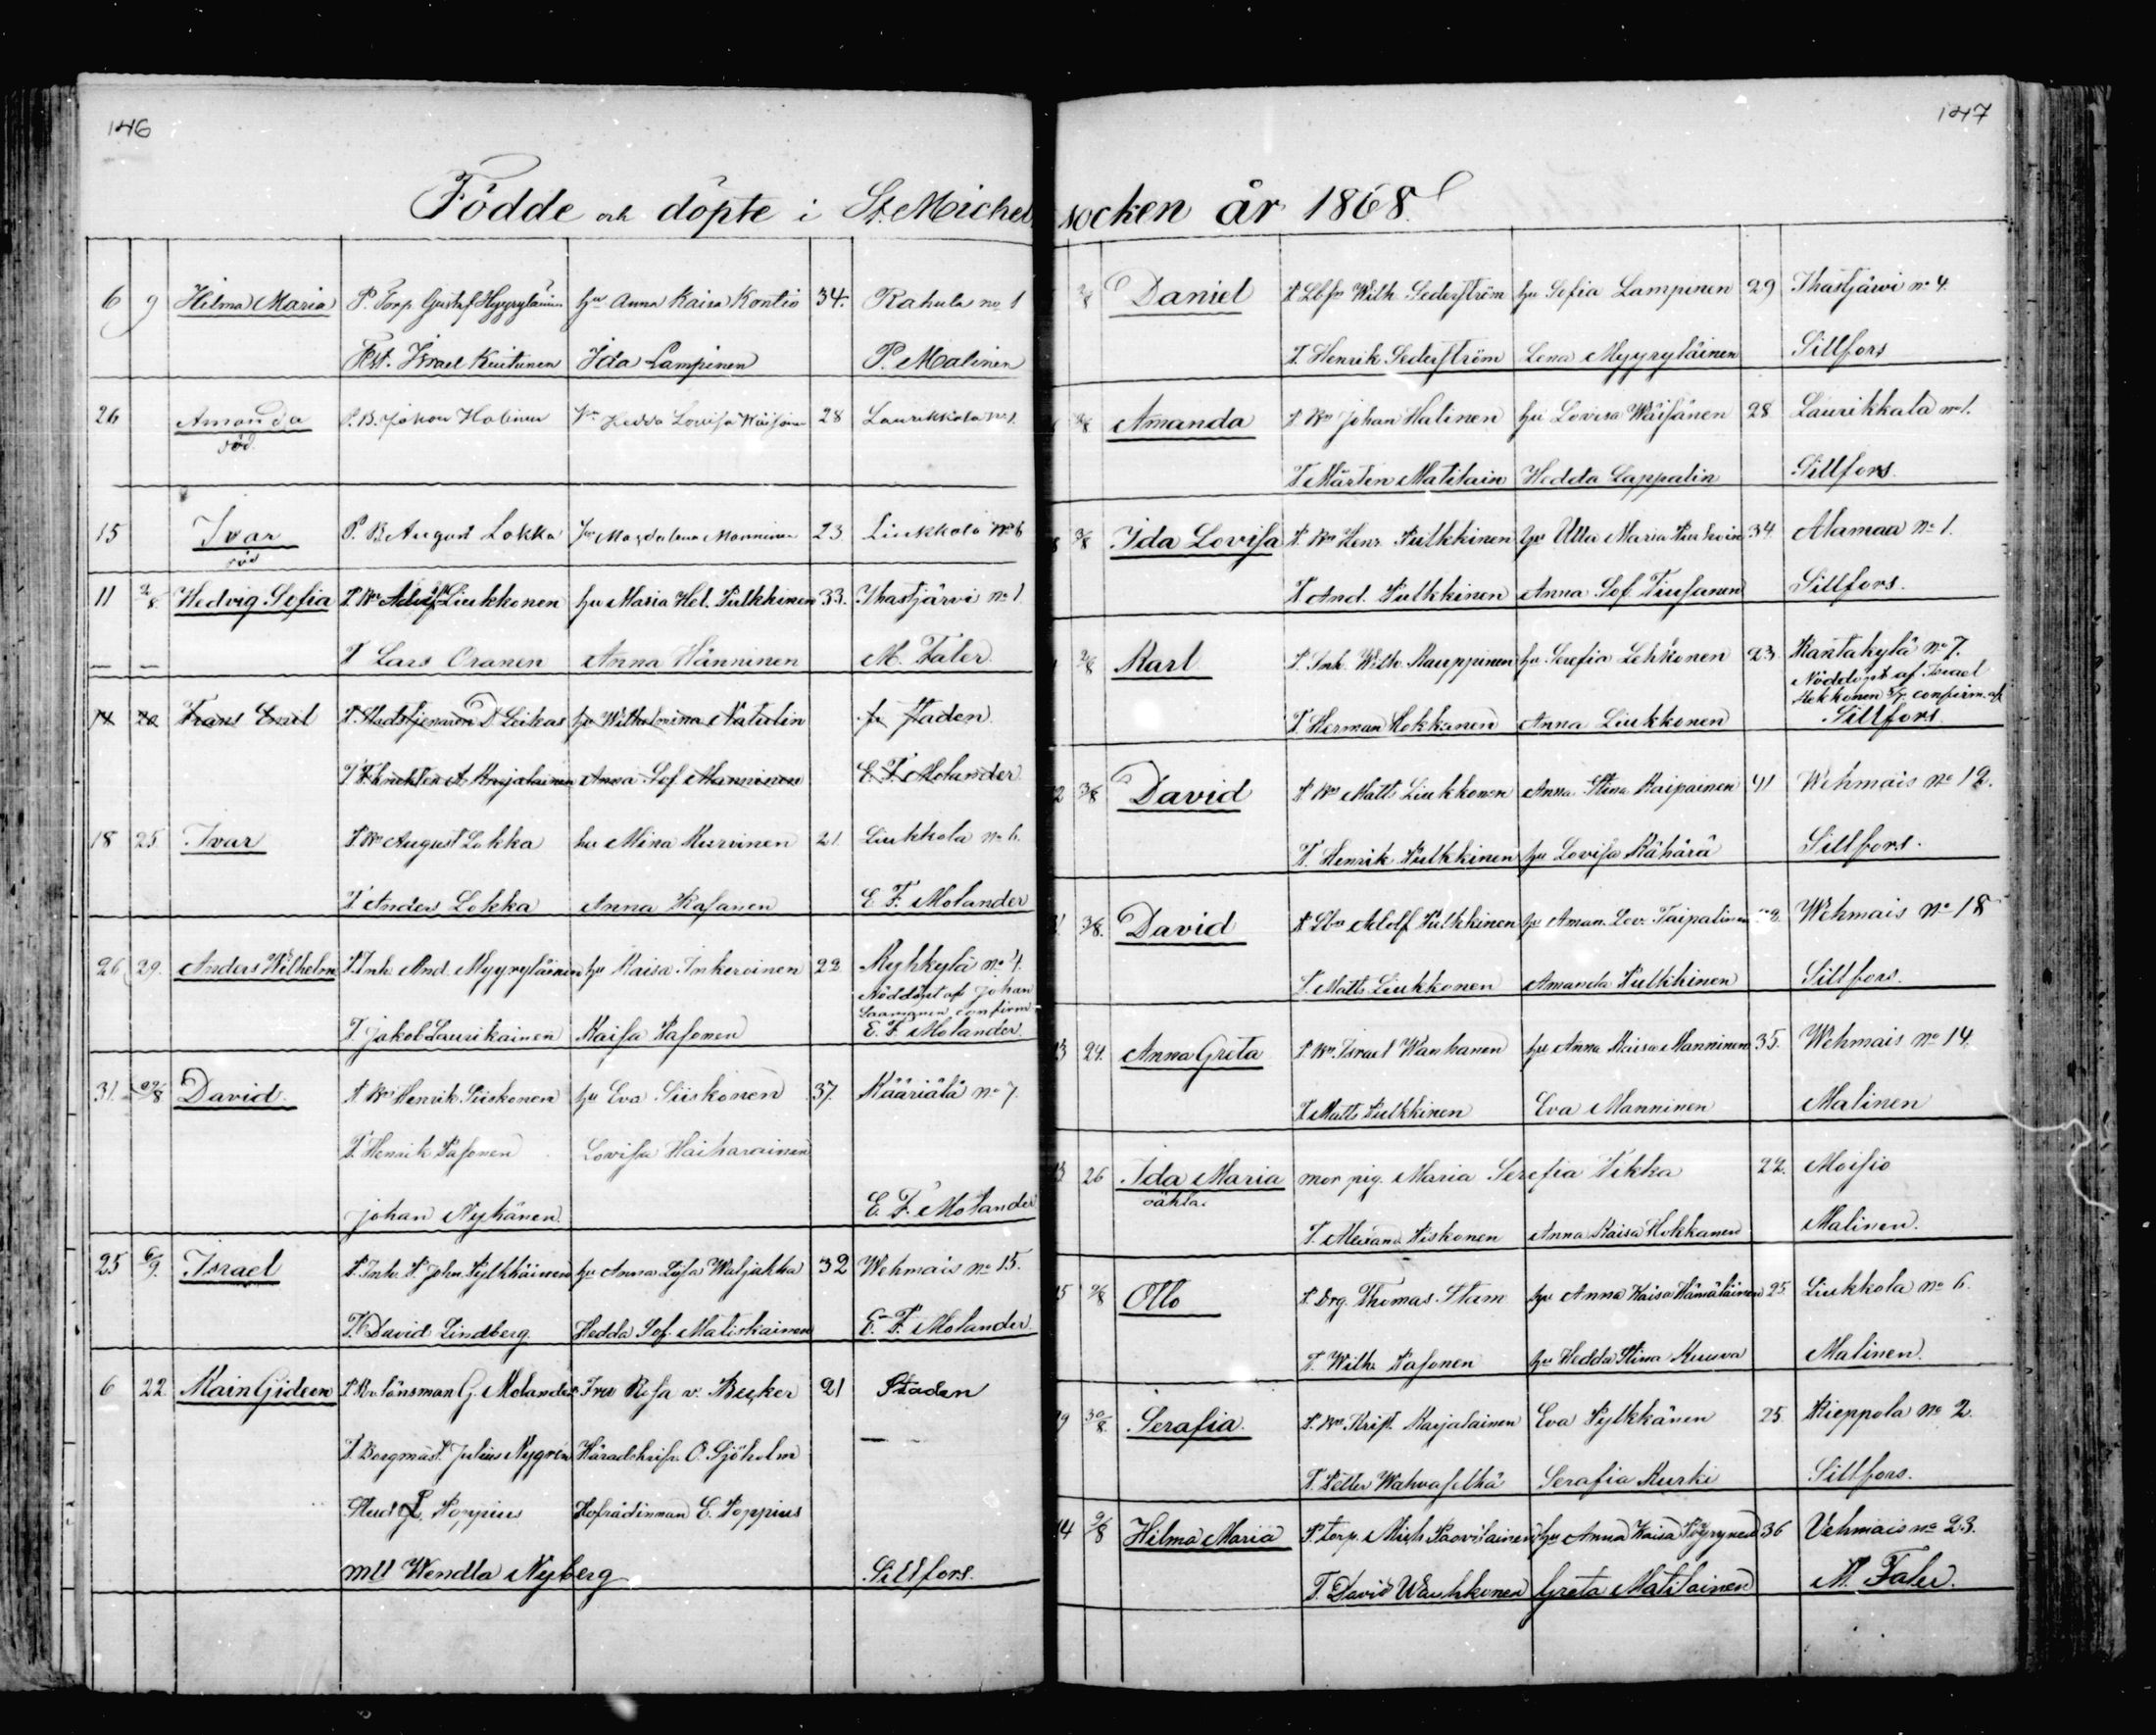 146
Födde och döpte i St. Michel
6 9 Hilma Maria P. Torp. Gustaf Myyryläinen hu Anna Kaisa Kontio 34. Rahula no 1
Israel Kiutunen Ida Lampinen P. Malinen
26 Amanda P. B. Johan Halinen Hedda Lovisa Wäisänen 28 Laurikkala no 1.
död.
15 Ivar P. B. August Lokka Magdalena Manninen 23. Liukkola No 6
död
11 2/8 Hedvig Sofia Adolf Liukkonen hu Maria Hel. Pulkkinen 33. Ihastjärvi no 1
— — T Lars Oranen Anna Hänninen M. Faler.
14 20 Frans Emil P. Stadstjenaren D. Leikas hu Wilhelmina Natulin fr staden.
T A. Karjalainen Anna Sof Manninen E. F. Molander
18 25 Ivar August Lokka hu Mina Kurvinen 21. Liukkola no 6.
T. Anders Lokka Anna Pasanen E. F. Molander
26 29. Anders Wilhelm P. Inh. And. Myyryläinen hu Kaisa Inkeroinen 22. Kyhkylä no 4.
Nöddöpt af Johan
confirm
T. Jakob Laurikainen Kaisa Pasonen E. F. Molander
31. David. Henrik Siiskonen hu Eva Siiskonen 37. Kääriälä no 7.
T. Henrik Pasonen Lovisa Haiharainen
Johan Nykänen. E. F. Molander
25 6/9. Israel P. Inh. P. John Pylkkäinen hu Anna Lisa Waljakka 32 Wehmais no 15.
T. David Lindberg. Hedda Sof. Matiskainen E. F. Molander.
6 22 Kain Gideon G. Molander Fru Rosa v. Becker 21 Staden
T. Borgmäst. Julius Nygren Häradshöfd. O. Sjöholm — -
Stud L. Poppius Hofrådinnan E. Poppius
mll Wendla Nyberg Sillfors.
147
socken år 1868.
Daniel Wilh. Sederström hu Sofia Lampinen 29 Ihastjärvi no 4.
T. Henrik Sederström Lena Myyryläinen Sillfors
Amanda Johan Halinen hu Lovisa Wäisänen 28 Laurikkala no 1.
T Mårten Matilain Hedda Lappalin Sillfors.
Ida Lovisa Henr. Pulkkinen hu Ulla Maria 34. Alamaa No 1.
T And. Pulkkinen Anna Sof. Tiusanen Sillfors.
Karl P. Inh. Wilh. Kauppinen hu Serefia Lehkonen 23. Rantakylä No 7.
Nöddöpt af Israel
Hokkonen confirm. af
T. Herman Hokkanen Anna Liukkonen Sillfors.
David Matts Liukkonen Anna Stina Kaipainen 41 Wehmais no 12.
T. Henrik Pulkkinen hu Lovisa Kähärä Sillfors.
David Adolf Pulkkinen hu Aman. Lov. Taipalinen Wehmais No 18
T. Matts Liukkonen Amanda Pulkkinen Sillfors.
24. Anna Greta Israel Wanhanen hu Anna Kaisa Manninen 35. Wehmais no 14.
T Matts Pulkkinen Eva Manninen Malinen
26 Ida Maria mor pig. Maria Serefia Pikka 22. Moisio
oäkta.
T. Piskonen Anna Kaisa Hokkanen Malinen.
Otto P. Drg. Thomas Stam hu Anna Kaisa Hämäläinen 25 Liukkola no 6.
T. Wilh. Pasonen hu Hedda Stina Kuuva Malinen.
30/8. Serafia. Krist. Karjalainen Eva Pylkkänen 25. Rieppola no 2.
T. Petter Wahvaselkä Serafia Kurki Sillfors.
Hilma Maria P. Torp. Mich Paovilainen hu Anna Kaisa Pöyrynen 36 Vehmais no 23.
T. David Wauhkonen Greta Matilainen M. Faler.